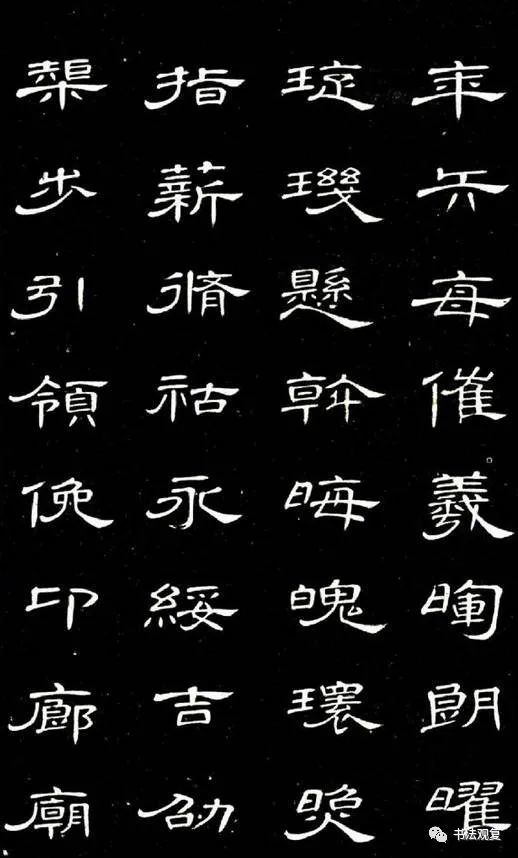 年矢每催羲暉朗曜
琁璣懸斡晦魄環照
指薪脩祜永綏吉劭
榘步引領俛卬廊廟
书法观复